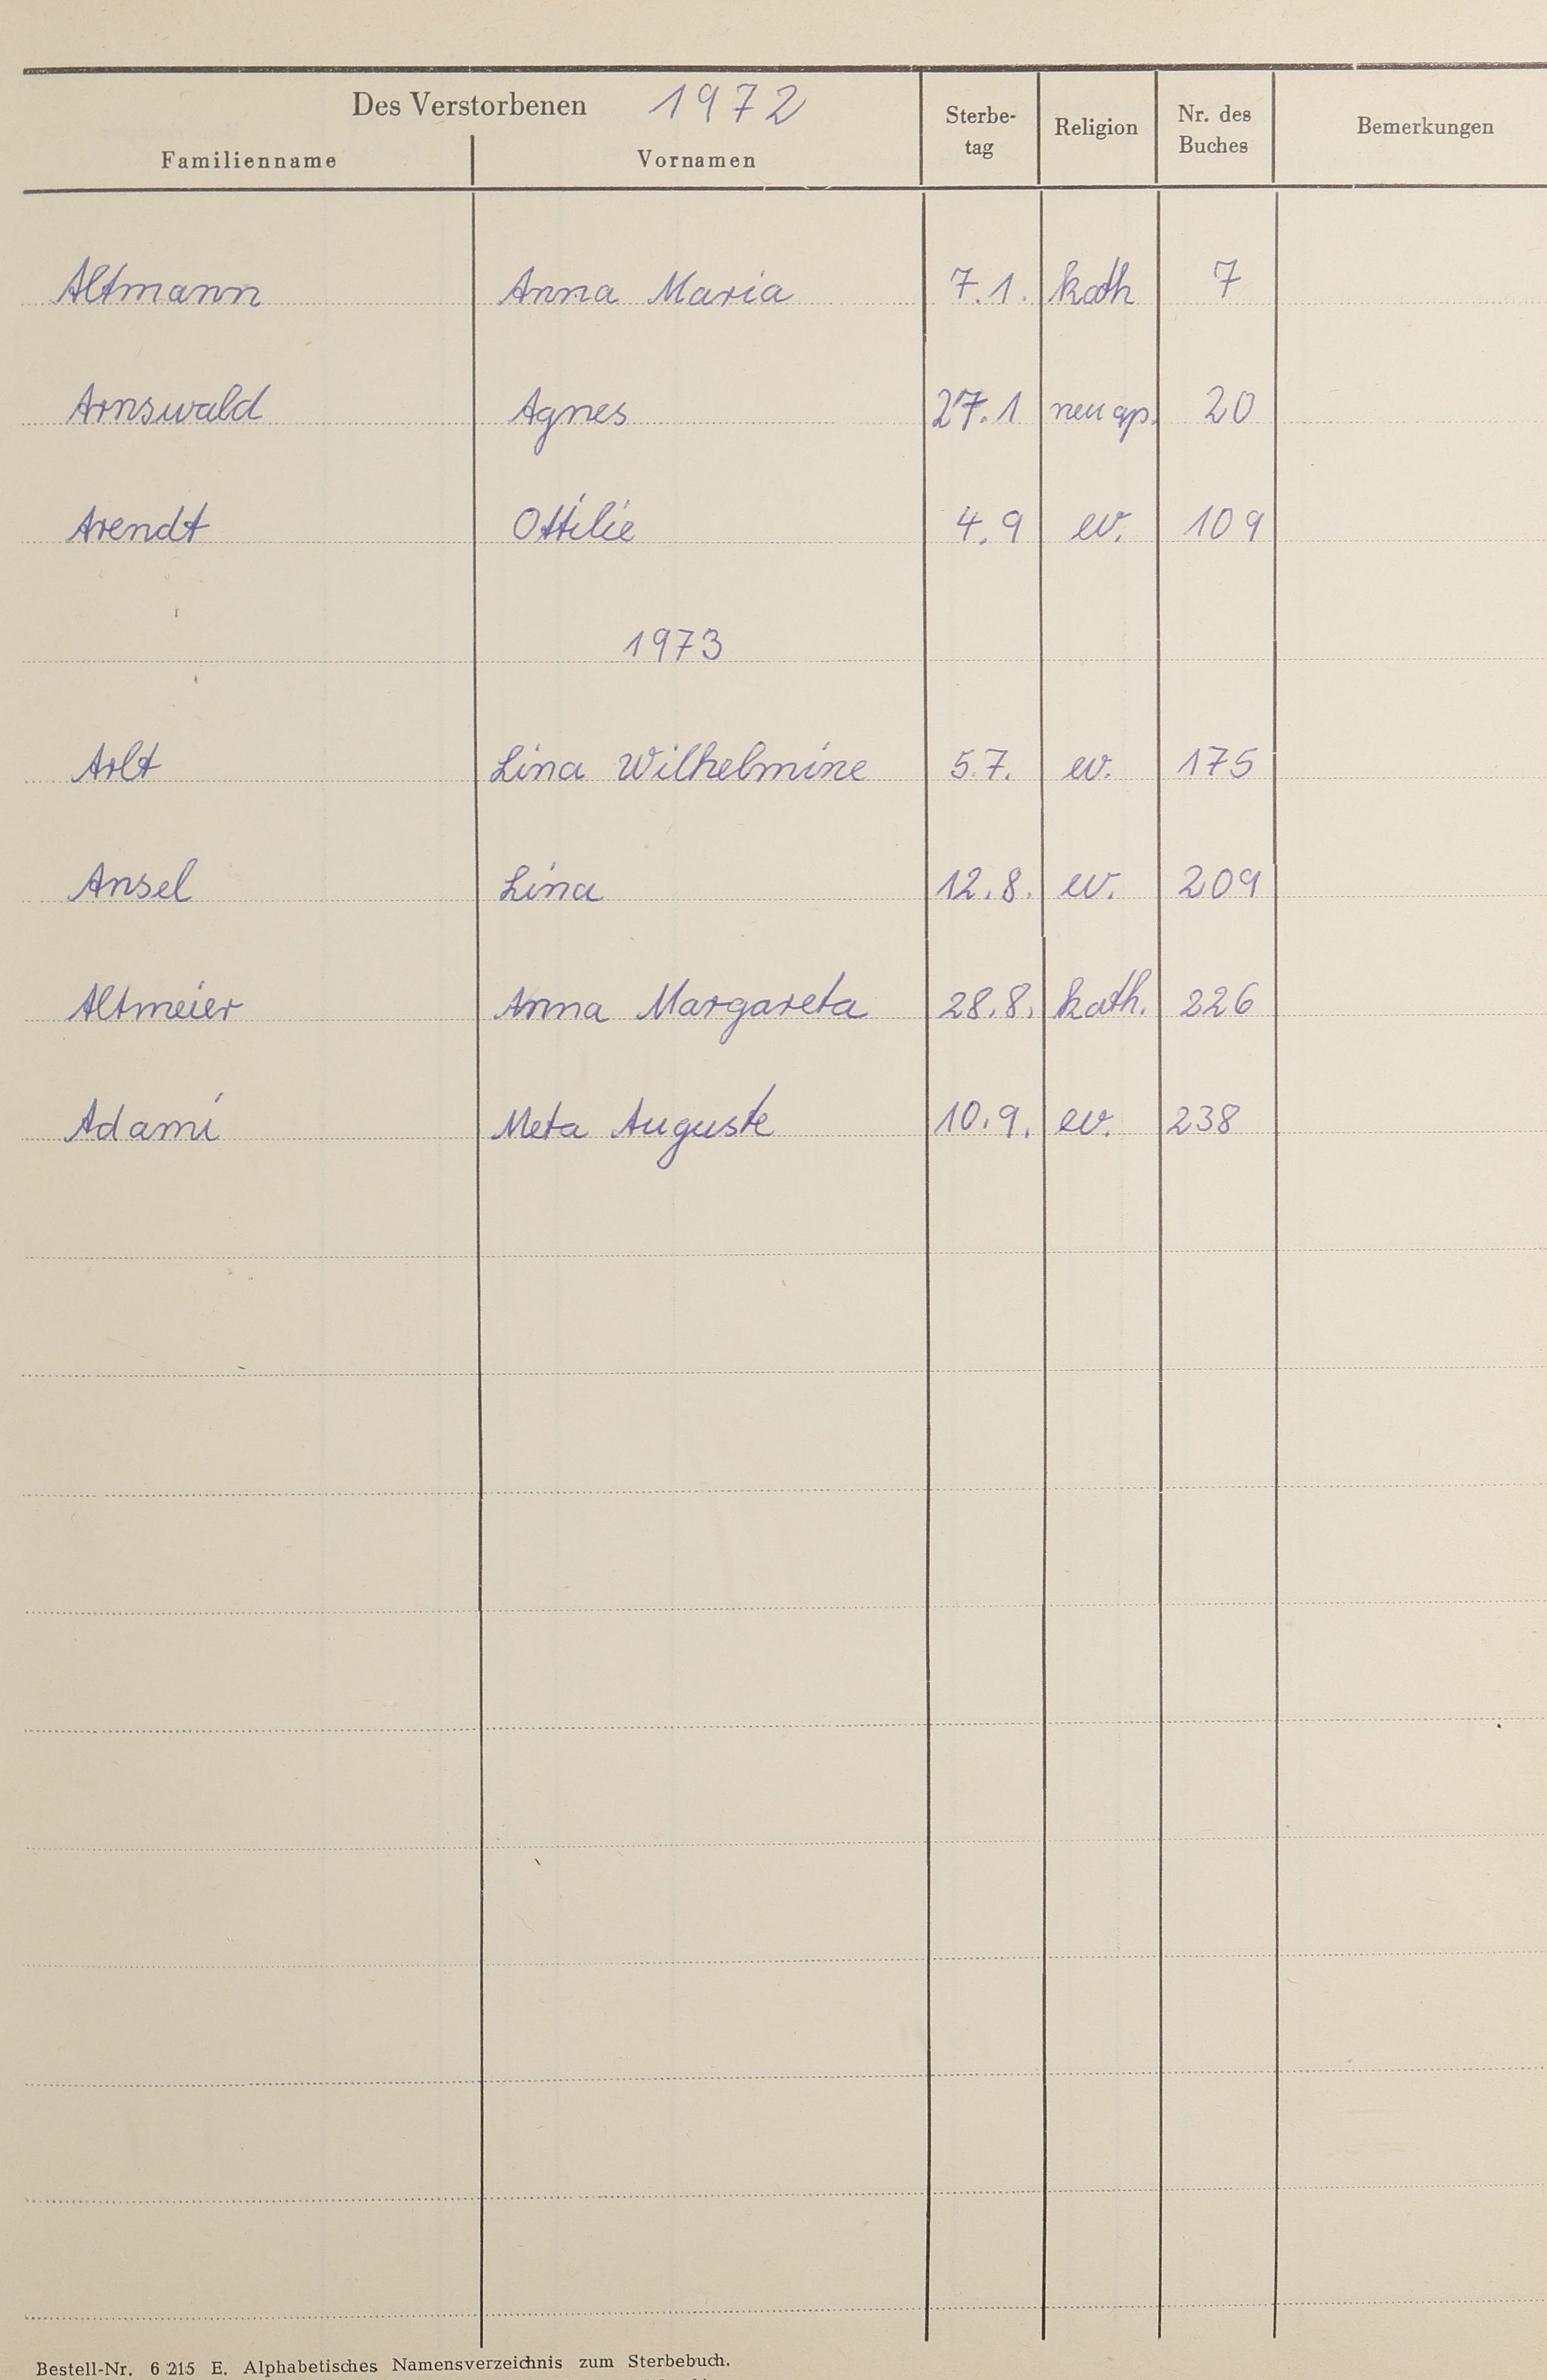 Des Verstorbenen 1972
Familienname Vornamen Sterbe-tag Religion Nr. des Buches Bemerkungen
Altmann Anna Maria 7.1. kath 7
Arnswald Agnes 27.1 neu ap. 20
Arendt Ottilie 4.9 ev. 109
1973
Arlt Lina Wilhelmine 5.7. ev. 175
Ansel Lina 12.8. ev. 209
Altmeier Anna Margareta 28.8. kath. 226
Adami Meta Auguste 10.9. ev. 238
Bestell-Nr. 6 215 E. Alphabetisches Namensverzeichnis zum Sterbebuch.